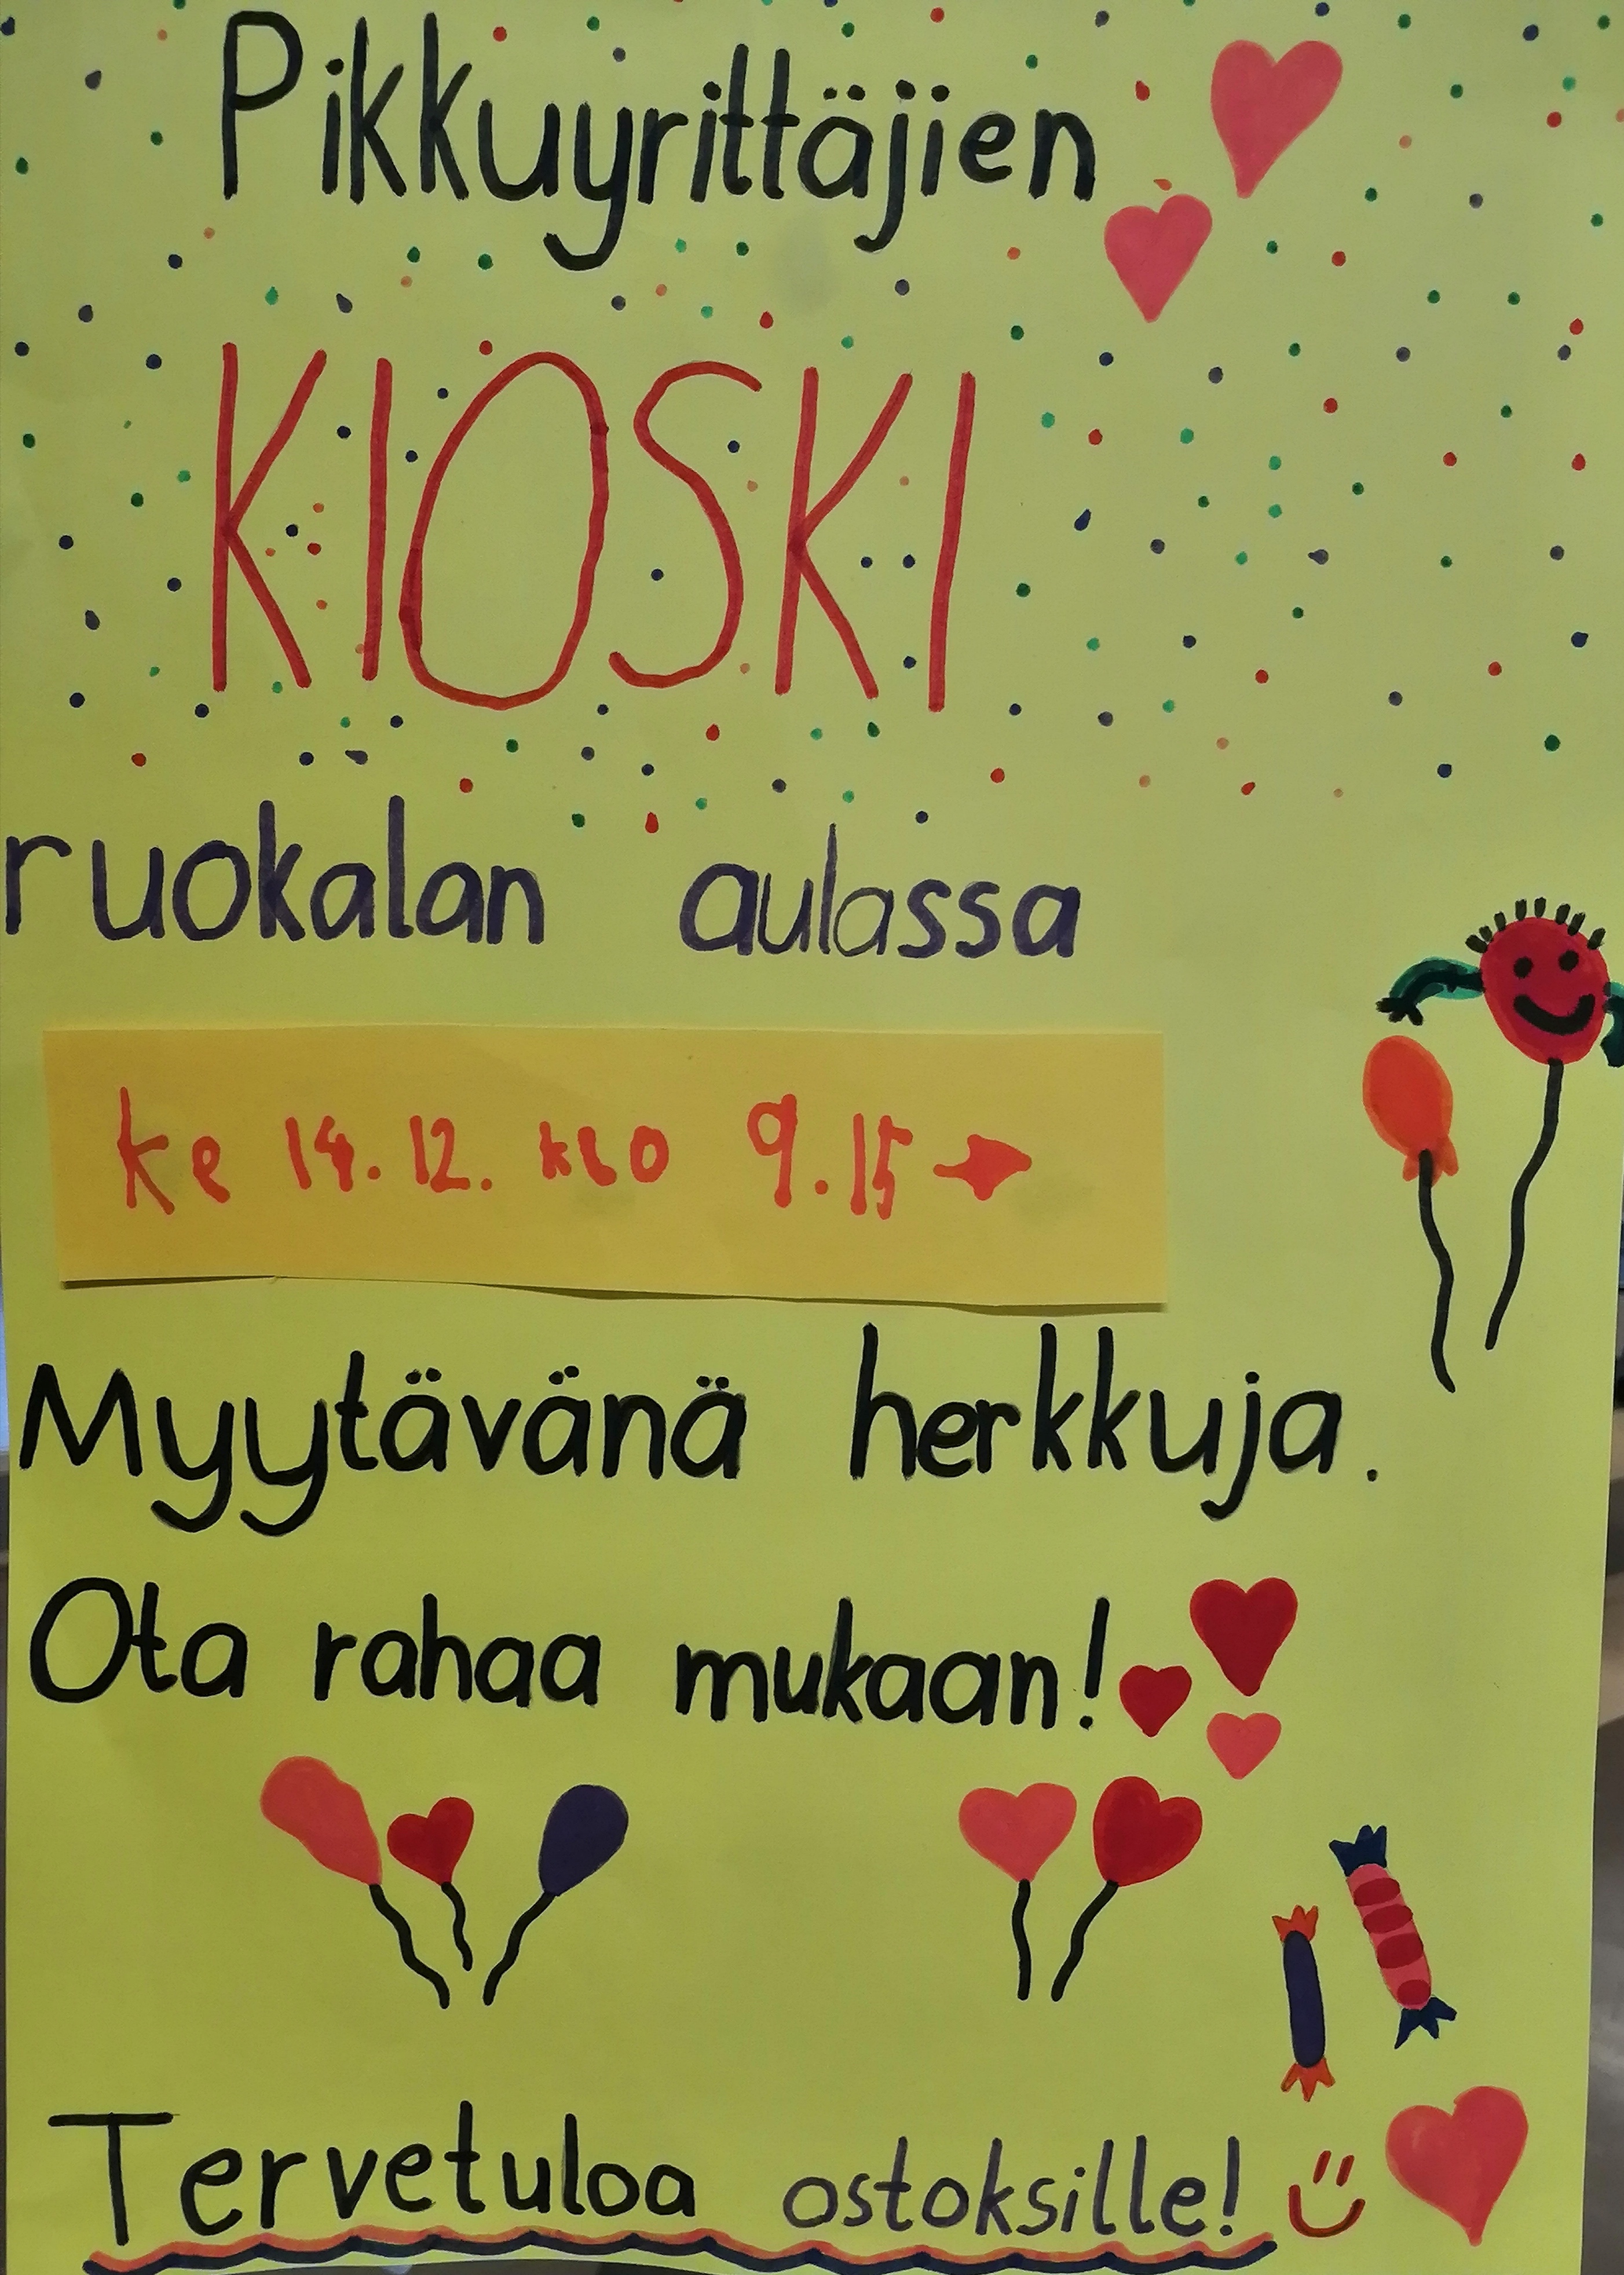 Pikkuyrittäjien
KIOSKI
ruokalan aulassa
ke 14.12. klo 9.15 →
Myytävänä herkkuja.
Ota rahaa mukaan!
Tervetuloa ostoksille!